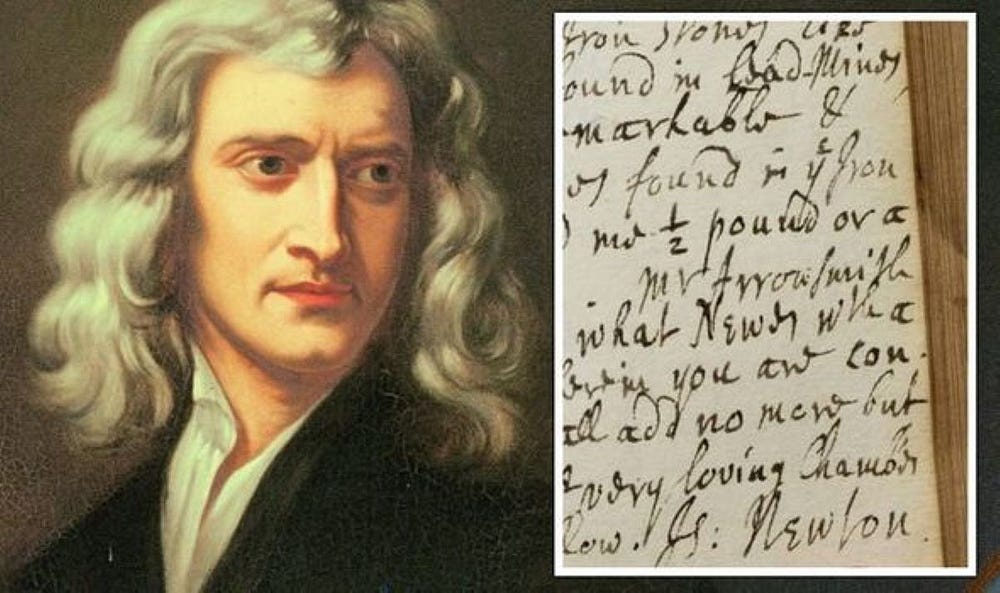 Iron Stones are
ound in lead-Mines
markable &
es found in yᵉ Iron
me ½ pound or a
Mr Arrowsmith
what News wth a
you are con
all add no more but
very loving Chamber
low. Is: Newton.